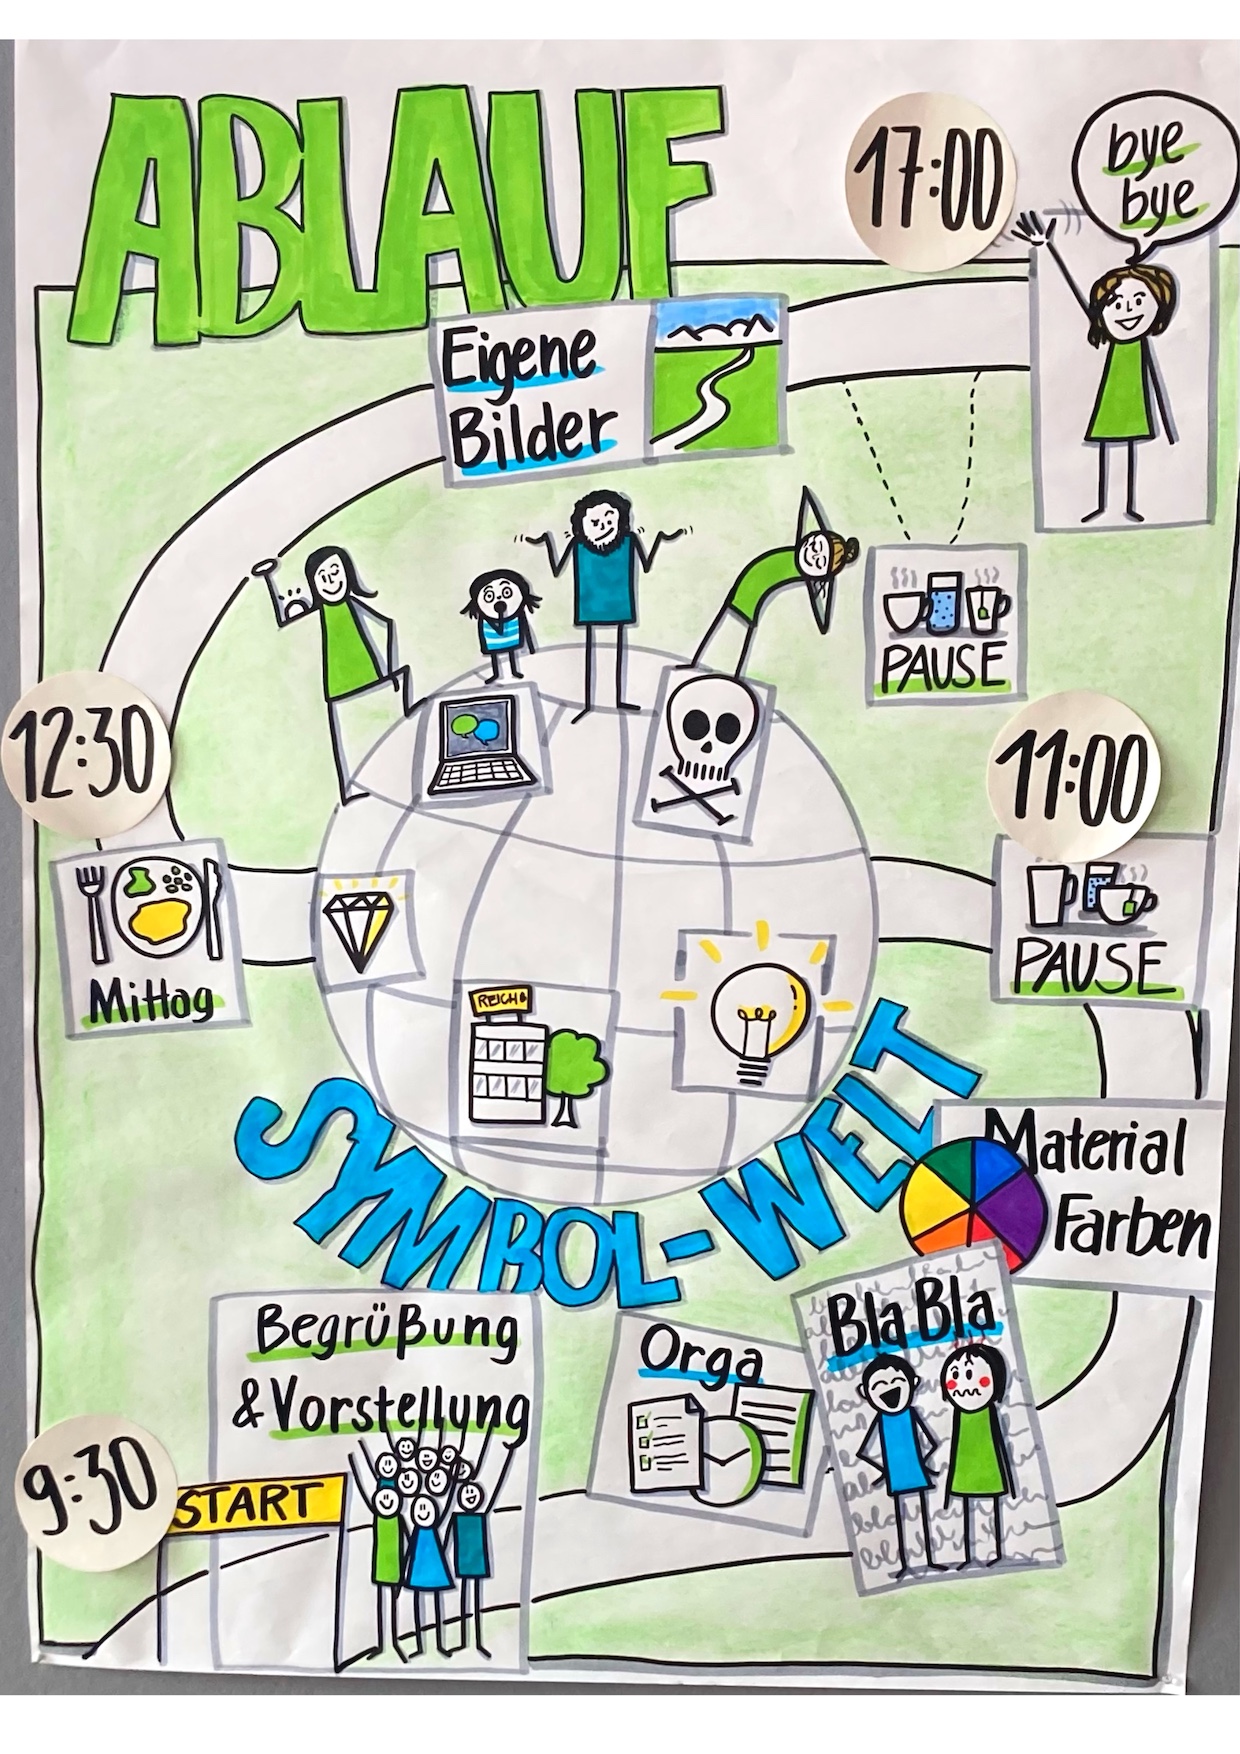 ABLAUF
17:00
bye
bye
Eigene
Bilder
PAUSE
12:30
11:00
Mittag
PAUSE
REICH
SYMBOL-WELT
Material
Farben
Begrüßung
& Vorstellung
Orga
Bla Bla
9:30
START